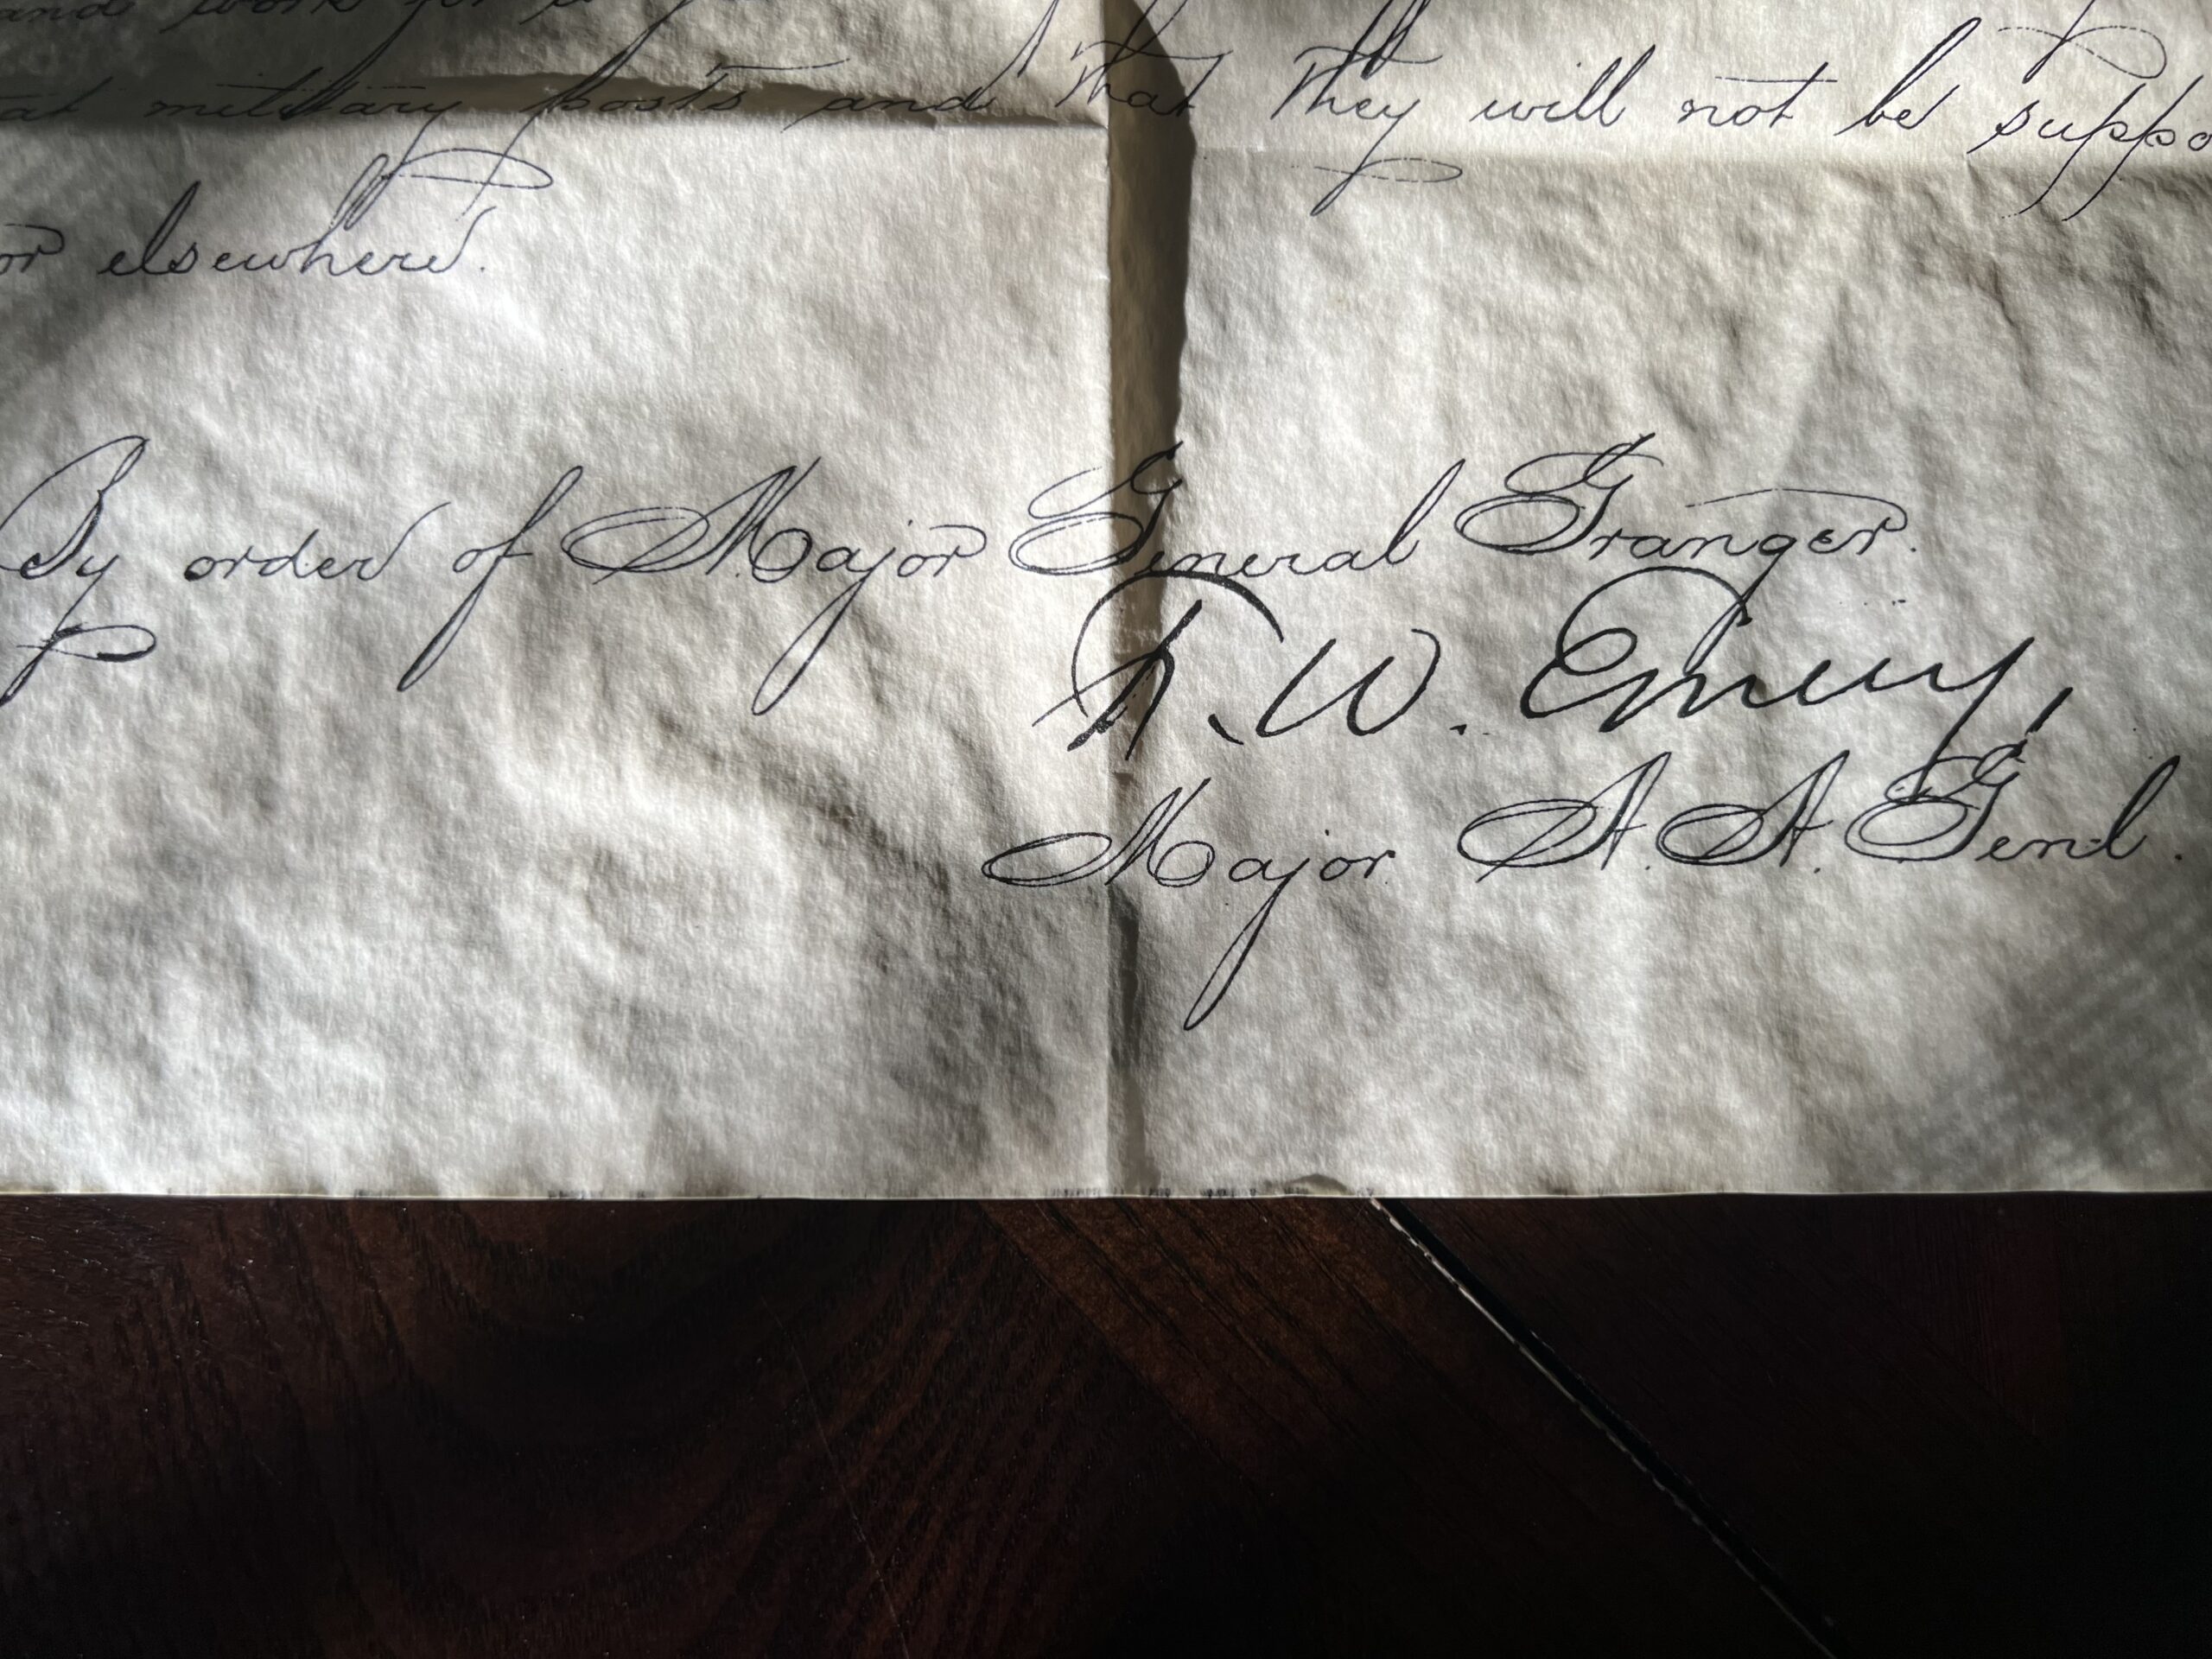 and work for
at military posts and that they will not be suppo
or elsewhere.
By order of Major General Granger.
F. W. Emery,
Major A. A. Genl.